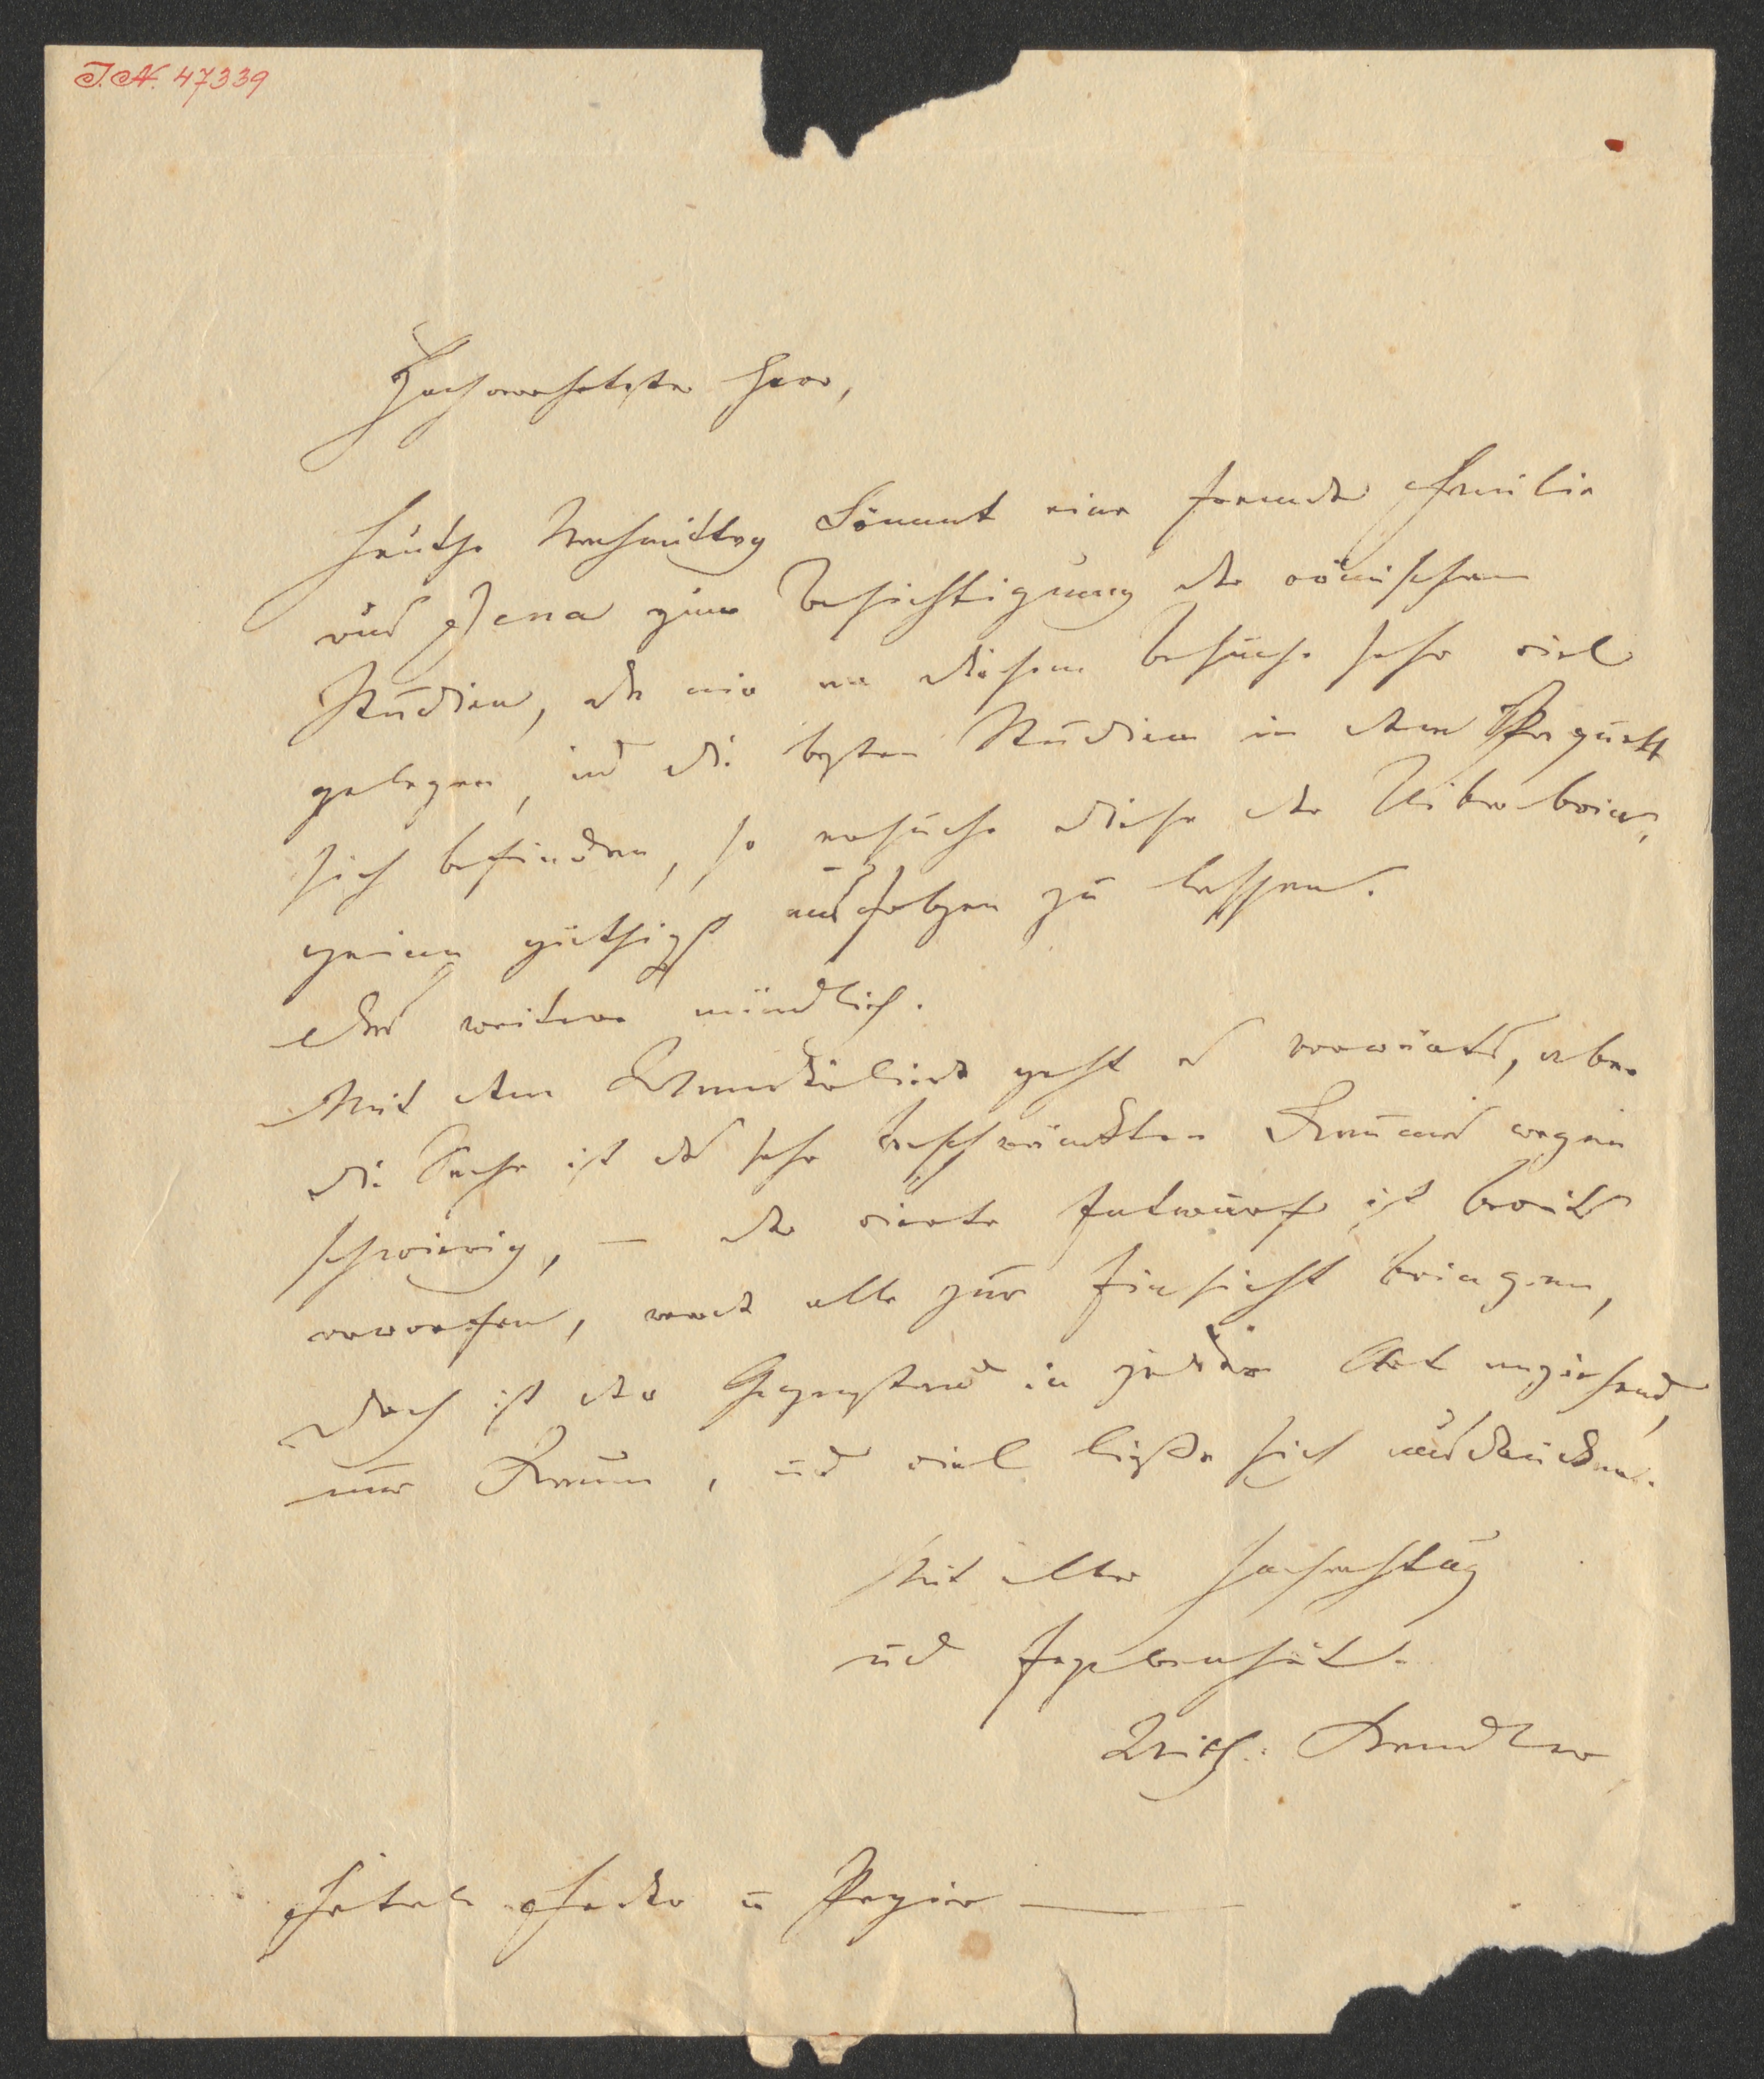 I.N. 47339
Hochverehrtester Herr,
heuthe Nachmittag kömmt eine fremde Familie
aus Jena zur Besichtigung der römischen
Studien, da mir an diesem Besuche sehr viel
gelegen, und die besten Studien in dem Paquett
sich befinden, so ersuche diese der Uiberbrin-
gerinn güthigst ausfolgen zu lassen.
das weitere mündlich.
Mit dem geht es vorwärts, aber
die Sache ist des sehr beschränkten Raumes wegen
schwierig, – der vierte Entwurf ist bereits
verworfen, werde alle zur Einsicht bringen,
doch ist der Gegenstand in jeder Art anziehend,
nur Raum, und viel ließe sich ausdrücken.
Mit aller Hochachtung
und Ergebenheit.
Frid: Bendler
Feder u Papier —